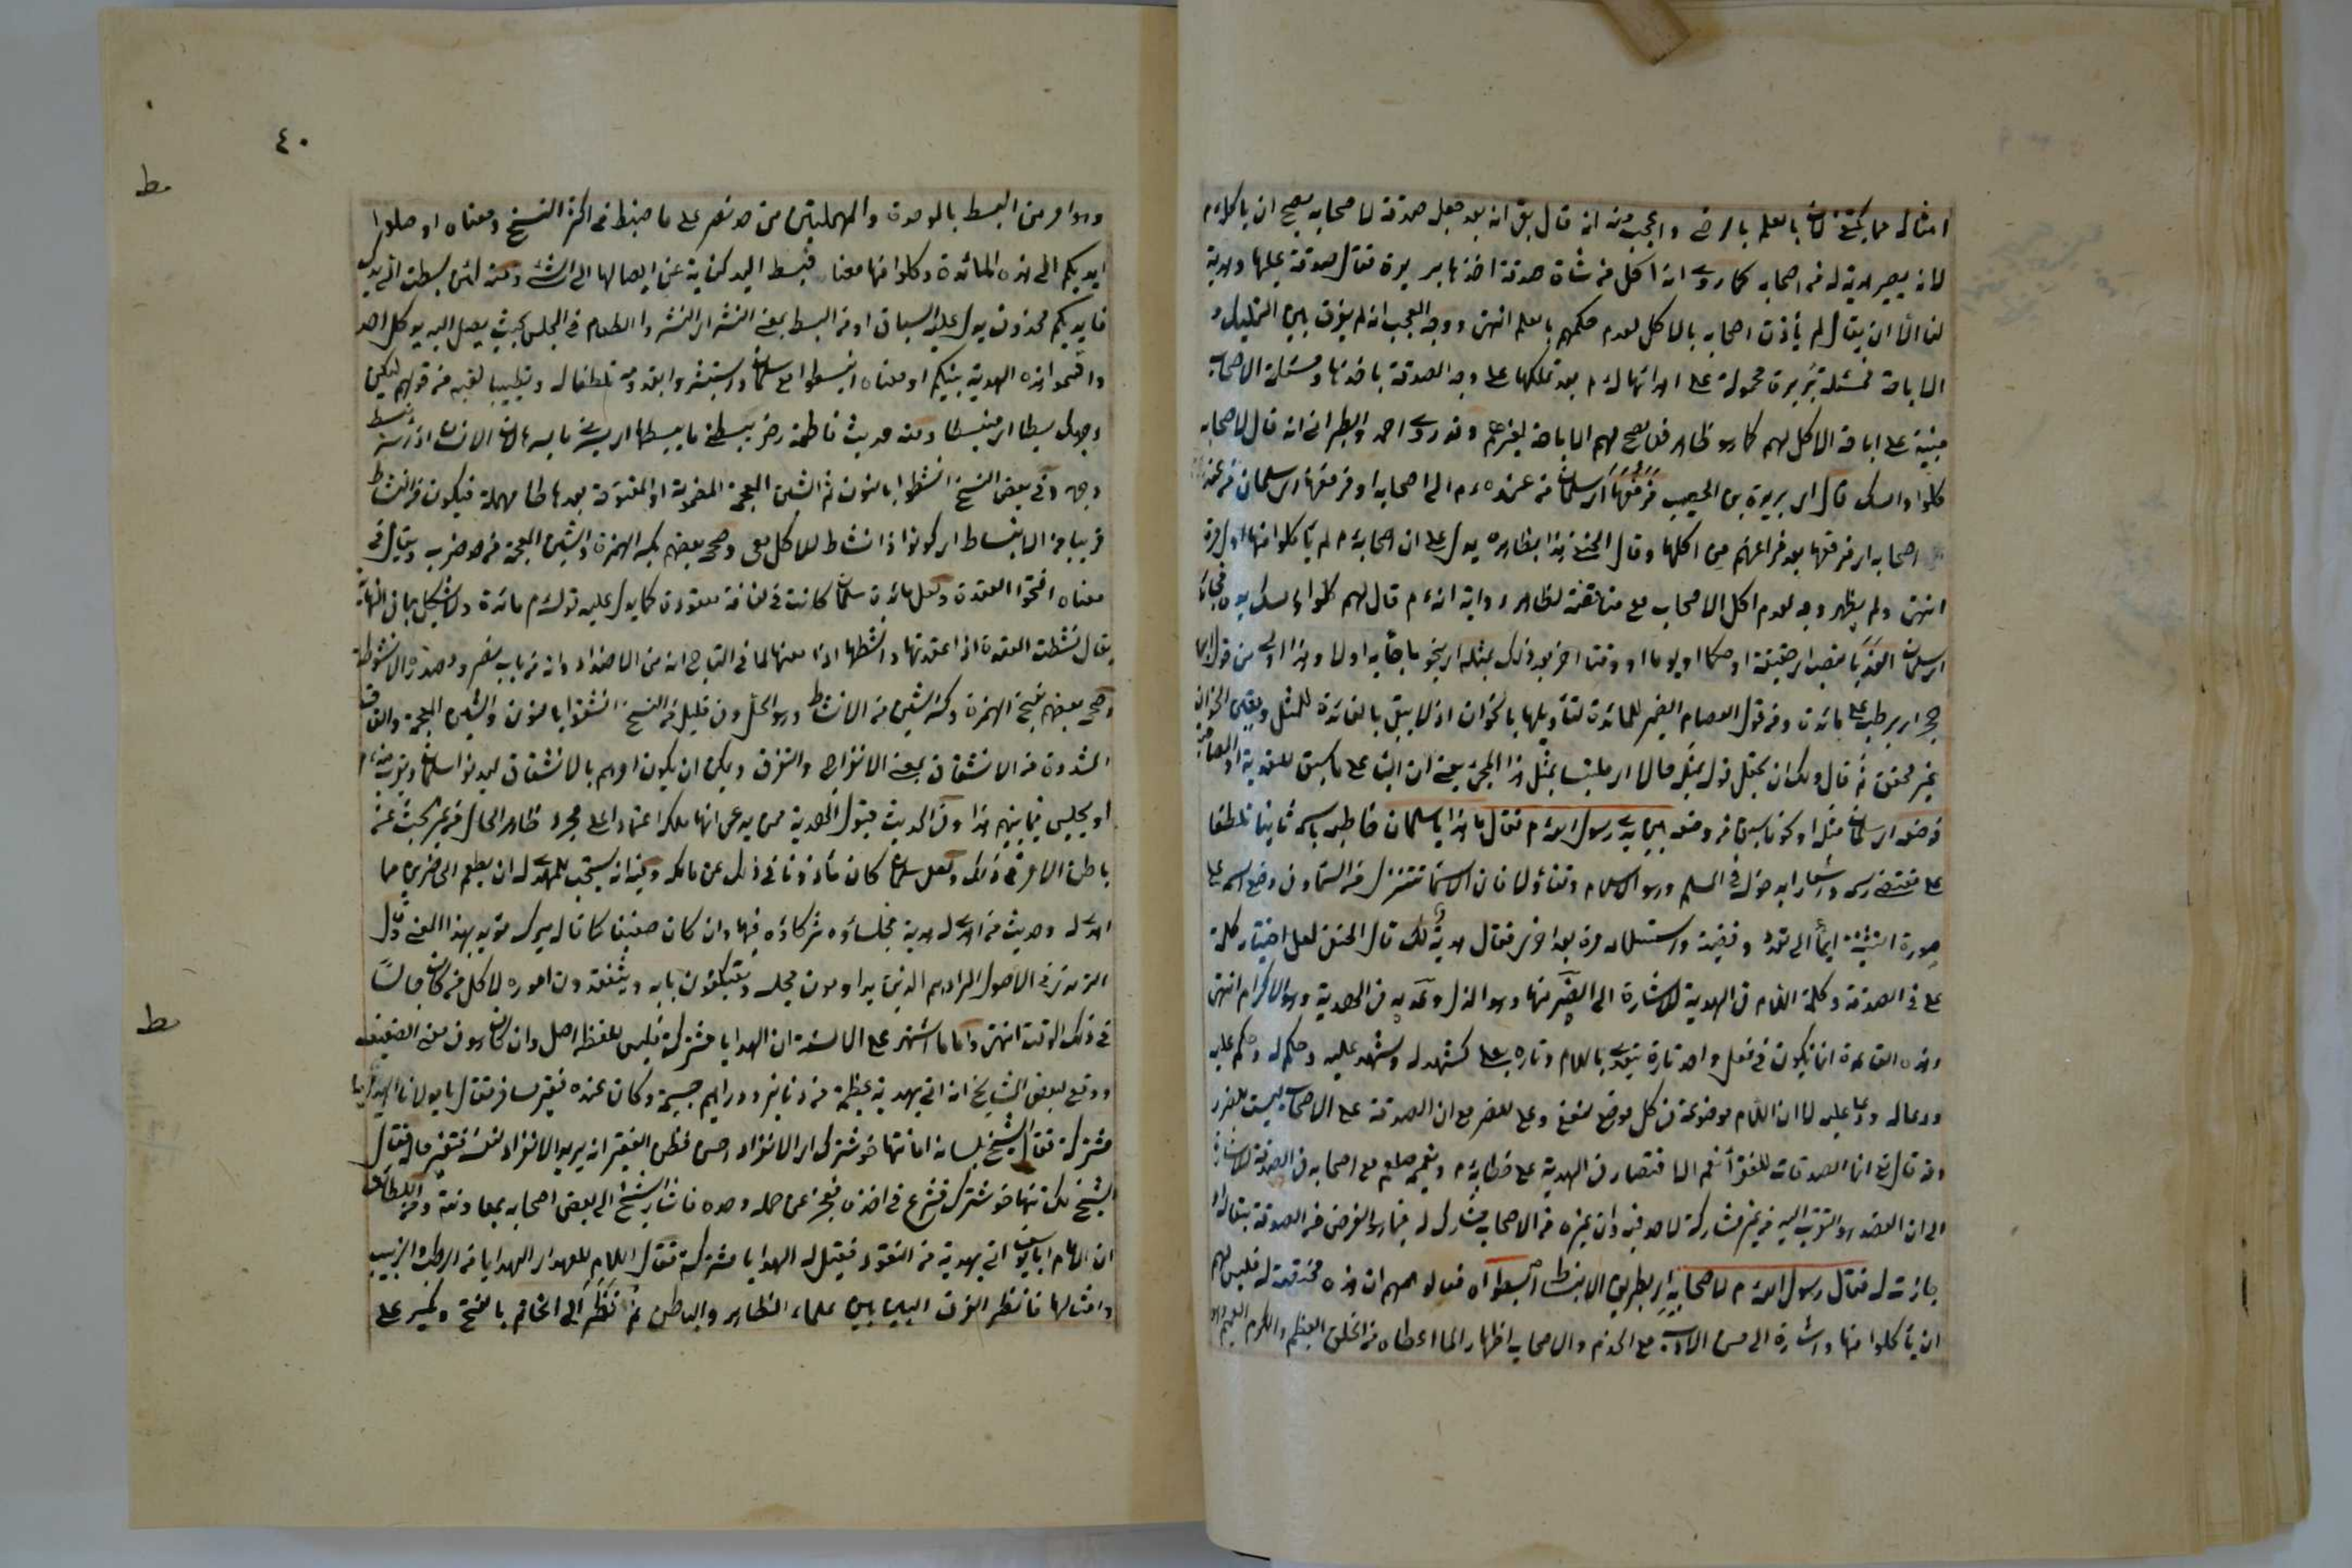 امثاله مما يكتفى فان بالعلم بالرضى واعجب منه انه قال بق انه بعد جعل صدقة لاصحابه يصح ان ياكل ءم
لانه يصير هدية له من اصحابه كما روى انه اكل من شاة صدقة اخذتها بريرة فقال صدقة عليها وهدية
لنا الا ان يقال لم يأذن اصحابه بالاكل لعدم حكمهم بالعلم انتهى ووجه العجب انه لم يفرق بين التمليك و
الاباحة فمسئلة بريرة محمولة على اهدائها له ءم بعد تملكها على وجه الصدقة باخذها ومسئلة الاصحاب
مبنية على اباحة الاكل لهم كما هو ظاهر فلا يصح لهم الاباحة لغيرهم وقد روى احمد والطبرانى انه قال لاصحابه
كلوا وامسك قال اى بريدة بن الحصيب فرفعها اى سلمان من عنده ءم الى اصحابه او فرفعها اى سلمان من عند
اصحابه اى فرفعها بعد فراغهم من اكلها وقال الحنفى هذا بظاهره يدل على ان اصحابه ءم لم ياكلوا منها اول مرة
انتهى ولم يظهر وجه لعدم اكل الاصحاب مع مناقضته لظاهر رواية انه ءم قال لهم كلوا وامسك يده فجاء
اى سلمان الغد بالنصب اى حقيقة او حكما اى يوما او وقتا اخر بعد ذلك بمثله اى بنحو ما جاء به اولا وهذا اولى من قول ابن
حجر اى برطب على مائدة ومن قول العصام الضمير للمائدة لتأويلها بالخوان اذ لا يبق بالفائدة للمثل وتعين الخوان
غير محقق ثم قال ولك ان تجعل قوله بمثله حالا اى ملتبسا بمثل هذا المجئ يعنى ان الباء على ما سبق للتعدية او المصاحبة
فوضعه اى سلمان مثله او نحو ما سبق فوضعه بين يدى رسول الله ءم فقال ما هذا يا سلمان خاطبه باسمه ثانيا تلطفا
على مقتضى رسمه واشعارا بدخوله فى المسلم وهو الاسلام وتفاؤلا فان الاسماء تتنزل من السماء فى وضع اسمه على
صورة التثنية ايماء الى تعدد وقضية واستسلامه مرة بعد اخرى فقال هدية لك قال الحنفى لعل اختيار كلمة
على فى الصدقة وكلمة اللام فى الهدية للاشارة الى الضرر منها وهو الذل وعدمه فى الهدية وهو الاكرام انتهى
وهذه القاعدة انما تكون فى فعل واحد تارة يتعدى باللام وتارة بعلى كشهد له وشهد عليه وحكم له وحكم عليه
ودعا له ودعا عليه لا ان اللام موضوعة فى كل موضع لنفع وعلى لضر مع ان الصدقة على الاصحاب ليست للضرر
وقد قال تع انما الصدقات للفقراء ثم الاقتصار فى الهدية على خطابه ءم وتعميم صلعم مع اصحابه فى الصدقة للاشارة
الى ان القصد هو التقرب اليه من غير مشاركة لاحد فيه وان غيره من الاصحاب مشارك له فيما هو الغرض من الصدقة
جازته له فقال رسول الله ءم لاصحابه اى بطريق الانبساط ابسطوا اه فعا لوهمهم ان هذه مختصة له فليس لهم
ان يأكلوا منها واشارة الى حسن الادب مع الخدم والاصحاب اظهارا لما اعطاه من الخلق العظيم والكرم العميم
٤٠
وهو امر من البسط بالموحدة والمهملتين من حد نصر على ما ضبط فى اكثر النسخ ومعناه اوصلوا
ايديكم الى هذه المائدة وكلوا منها معنا فبسط اليد كناية عن ايصالها الى الشئ ومنه لئن بسطت الى يدك
فايديكم محذوف يدل عليه السياق او من البسط بمعنى النشر اى انشروا الطعام فى المجلس بحيث يصل اليه يد كل احد
واقسموا هذه الهدية بينكم او معناه انبسطوا مع سلمان واستبشروا بقدومه تلطفا له وتطييبا لقلبه من قولهم ليكن
وجهك بسطا اى منبسطا ومنه حديث فاطمة رض يبسطنى ما يبسطها اى يسرنى ما يسرها لان الانسان اذا سر انبسط
وجهه وفى بعض النسخ انشطوا بالنون ثم الشين المعجمة المضمومة او المفتوحة بعدها طاء مهملة فيكون من النشاط
قريبا من الانبساط اى كونوا ذا نشاط للاكل معى وصحح بعضهم بكسر الهمزة والشين المعجمة من حد ضرب ويقال فى
معناه افتحوا العقدة ولعل مائدة سلمان كانت فى لفافة معقودة كما يدل عليه قوله ءم مائدة ولا يشكل بما فى النهاية
يقال نشطت العقدة اذا عقدتها وانشطها اذا حللتها لما فى التاج انه من الاضداد وانه من باب نصر ومصدره الانشوطة
وصحح بعضهم بفتح الهمزة وكسر الشين من الانشاط وهو الحل وفى قليل من النسخ انشقوا بالنون والشين المعجمة والقاف
المشددة من الانشقاق بمعنى الانفراج والتفرق ويمكن ان يكون امرهم بالانشقاق ليدنوا سلمان ويقرب منه ءم
او يجلس فيما بينهم هذا وفى الحديث قبول الهدية ممن يدعى انها ملكه اعتمادا على مجرد ظاهر الحال من غير بحث عن
باطن الامر فى ذلك ولعل سلمان كان مأذونا فى ذلك عن مالكه وفيه انه يستحب للمهدى له ان يطعم الحاضرين مما
اهدى له وحديث من اهدى له هدية فجلساؤه شركاؤه فيها وان كان ضعيفا كما قاله ميرك مؤيد بهذا المعنى وقال
الترمذى فى الاصول المراد بهم الذين يداومون مجلسه ويعتكفون بابه ويتفقدون اموره لا كل من كان جالسا
فى ذلك الوقت انتهى واما ما اشتهر على الالسنة ان الهدايا مشتركة فليس للفظه اصل وان كان هو فى معنى الضعيف
ووقع لبعض المشايخ انه اتى بهدية عظيمة من دنانير ودراهم جسيمة وكان عنده فقير مسافر فقال يا مولانا الهدايا
مشتركة فقال الشيخ بلسانه اما تنها خوشترك اى الانفراد احسن فظن الفقير انه يريد الانفراد لنفسه فتغير حاله فقال
الشيخ لك تنها خوشترك فشرع فى اخذه فعجز عن حمله وحده فاشار الشيخ الى بعض اصحابه بمعاونته ومن اللطائف
ان الامام ابا يوسف اتى بهدية من النقود فقيل له الهدايا مشتركة فقال اللام للعهد اى الهدايا من الرطب والزبيب
وامثالها فانظر الفرق البين بين علماء الظاهر والباطن ثم نظر الى الخاتم بالفتح وكسر على